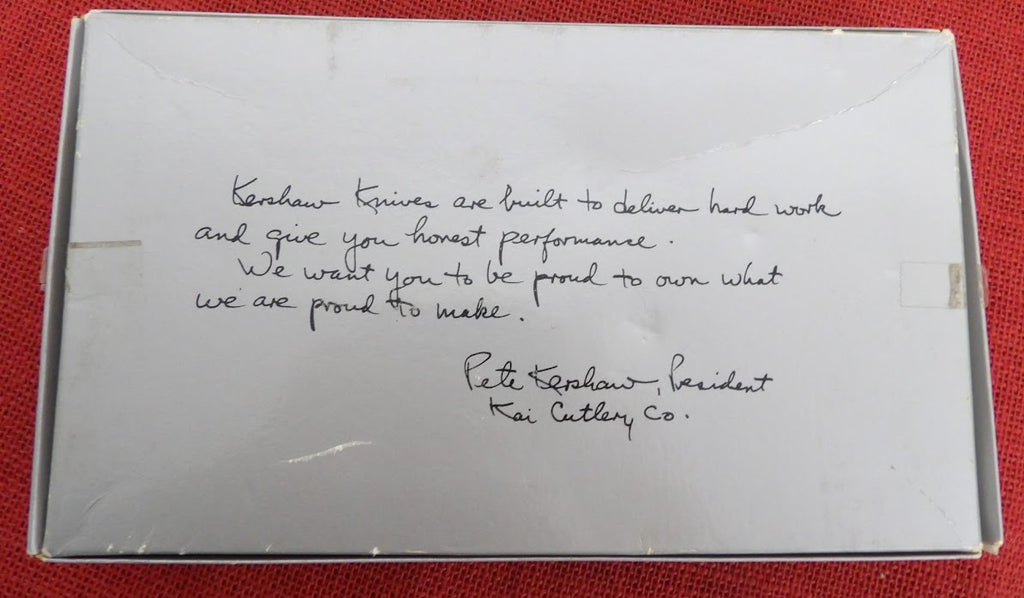 Kershaw Knives are built to deliver hard work
and give you honest performance.
We want you to be proud to own what
we are proud to make.
Pete Kershaw, President
Kai Cutlery Co.